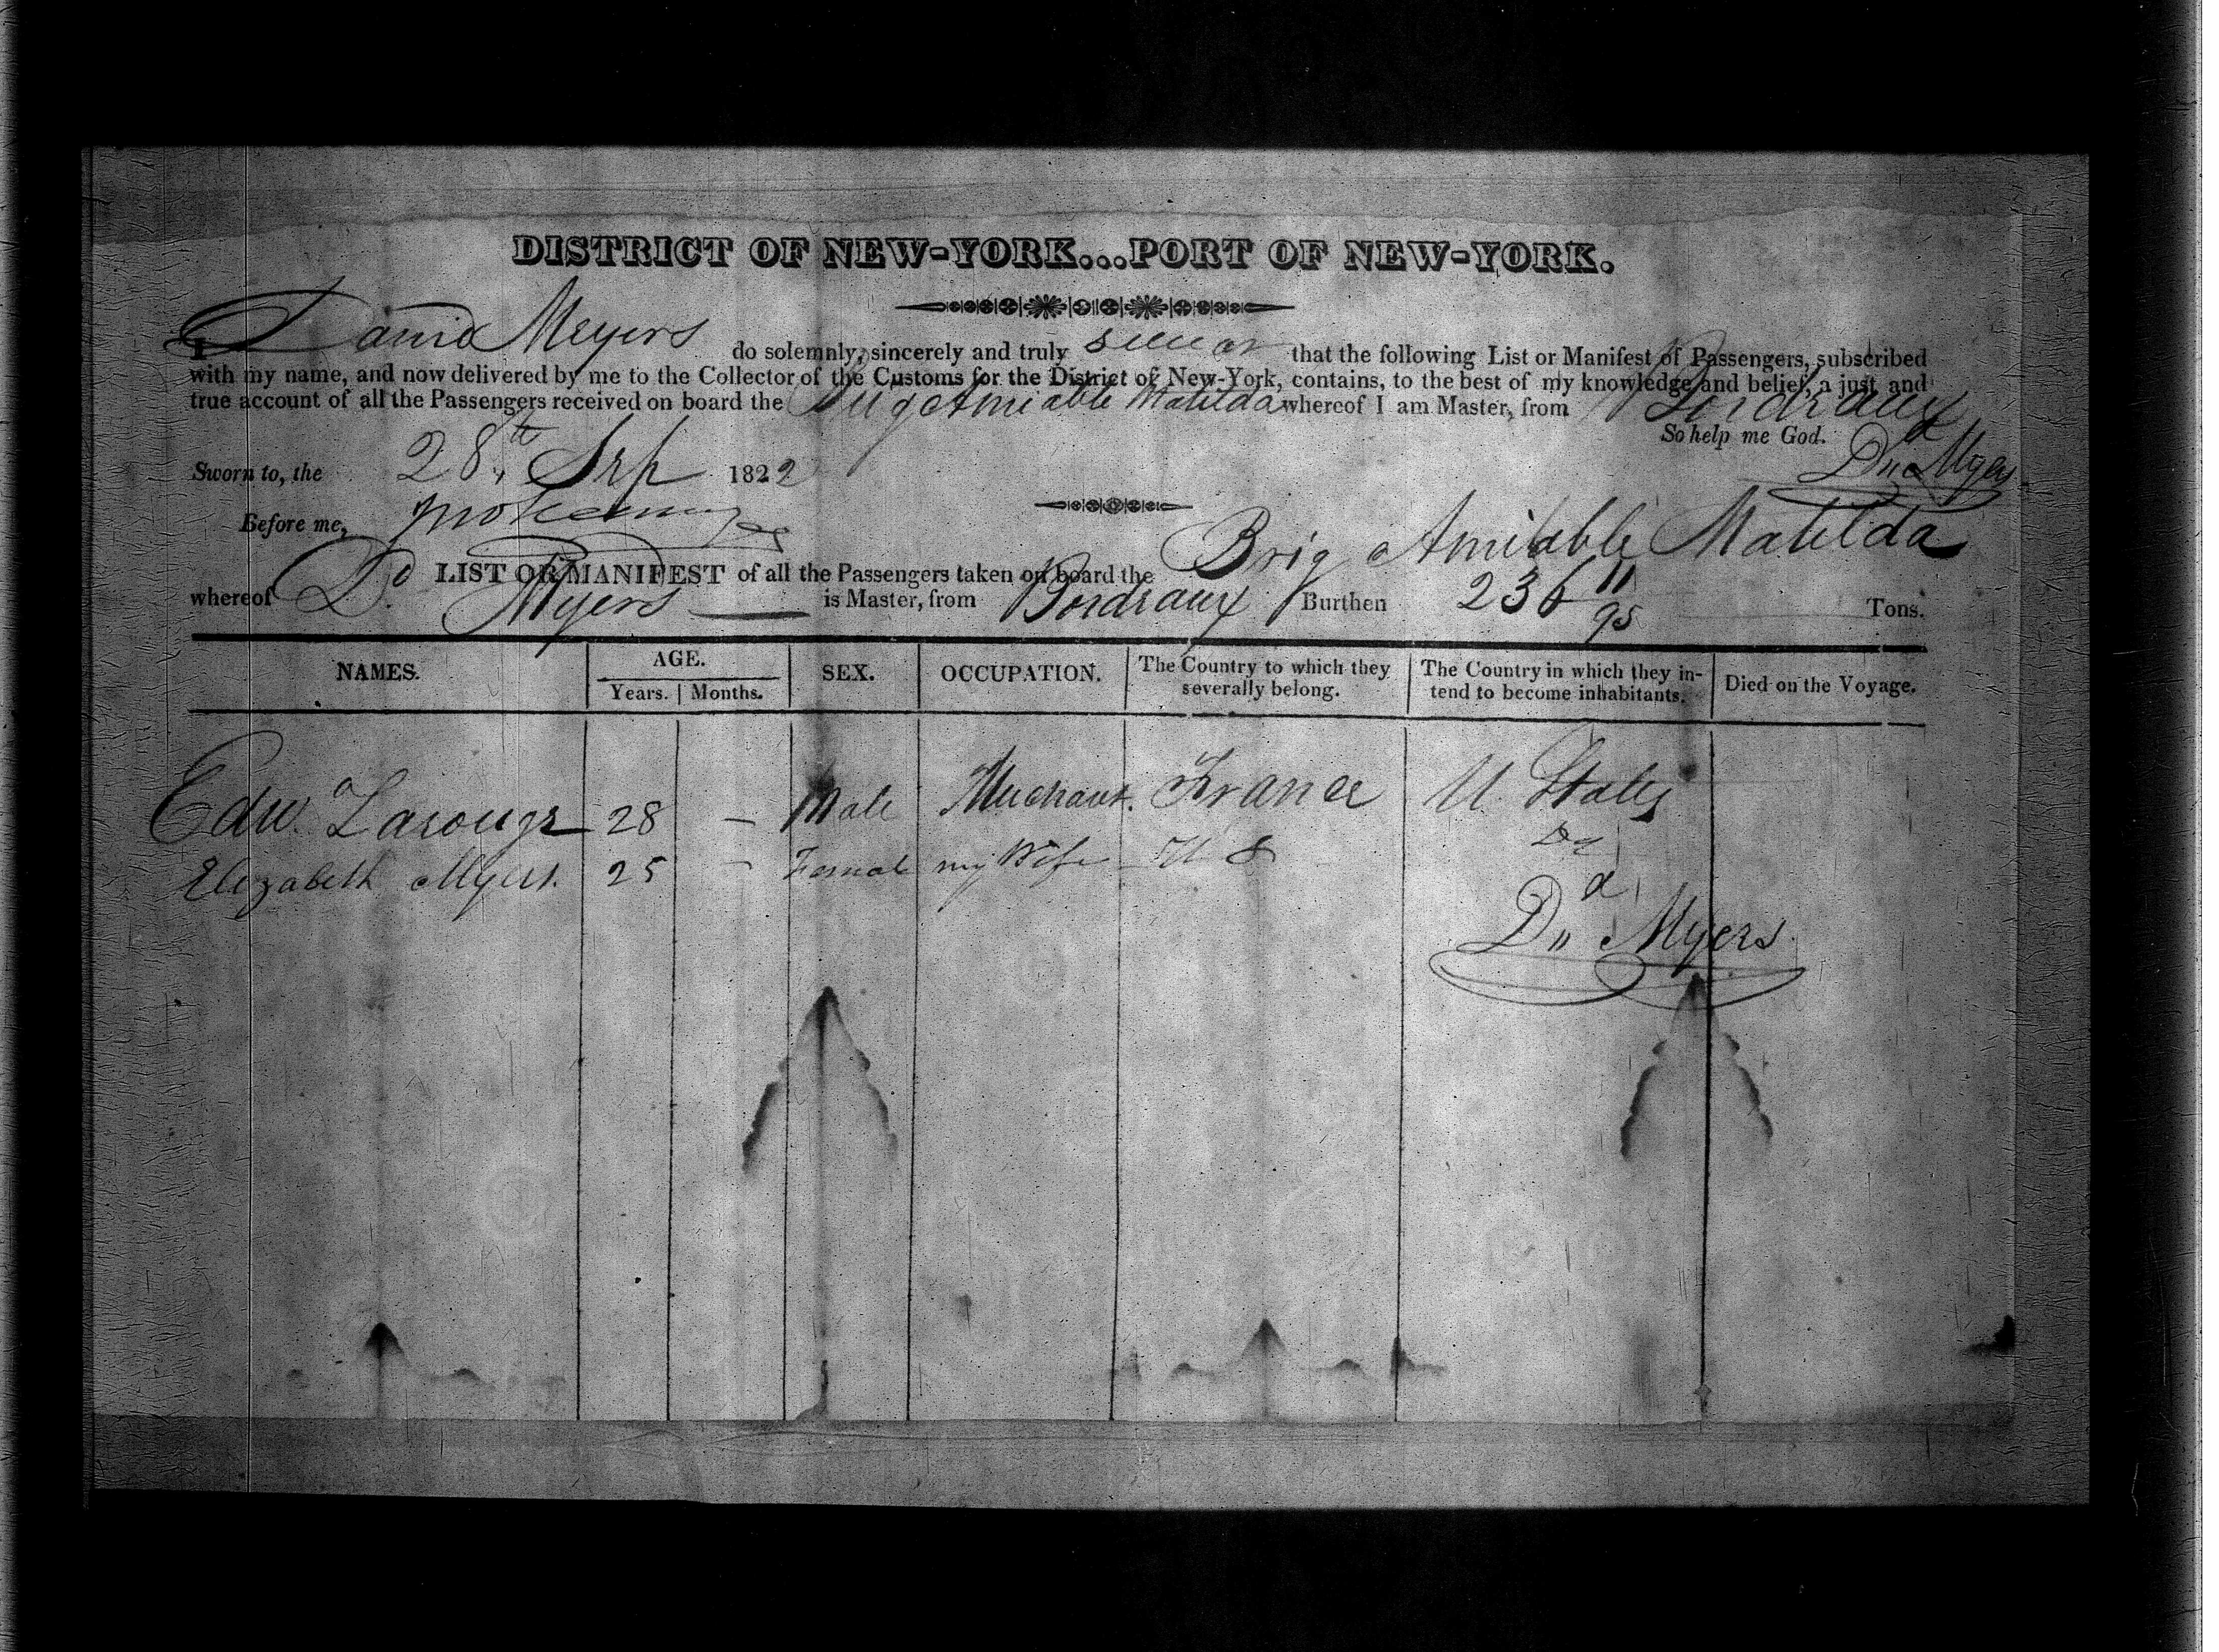 DISTRICT OF NEW-YORK...PORT OF NEW-YORK.
I David Meyers do solemnly, sincerely and truly swear that the following List or Manifest of Passengers, subscribed
with my name, and now delivered by me to the Collector of the Customs for the District of New-York, contains, to the best of my knowledge and belief, a just and
true account of all the Passengers received on board the Brig Amiable Matilda whereof I am Master, from Bordeaux
So help me God.
Sworn to, the 28th Sep 1822
Dd Myers
Before me,
LIST OR MANIFEST of all the Passengers taken on board the Brig Amiable Matilda
whereof Dd Myers is Master, from Bordeaux Burthen 236 11/95 Tons.
NAMES. AGE. SEX. OCCUPATION. The Country to which they severally belong. The Country in which they intend to become inhabitants. Died on the Voyage.
Years. Months.
Edwd. 28 — Male Merchant. France U. States
Elizabeth Myers. 25 — Female my Wife U S Do
Dd Myers